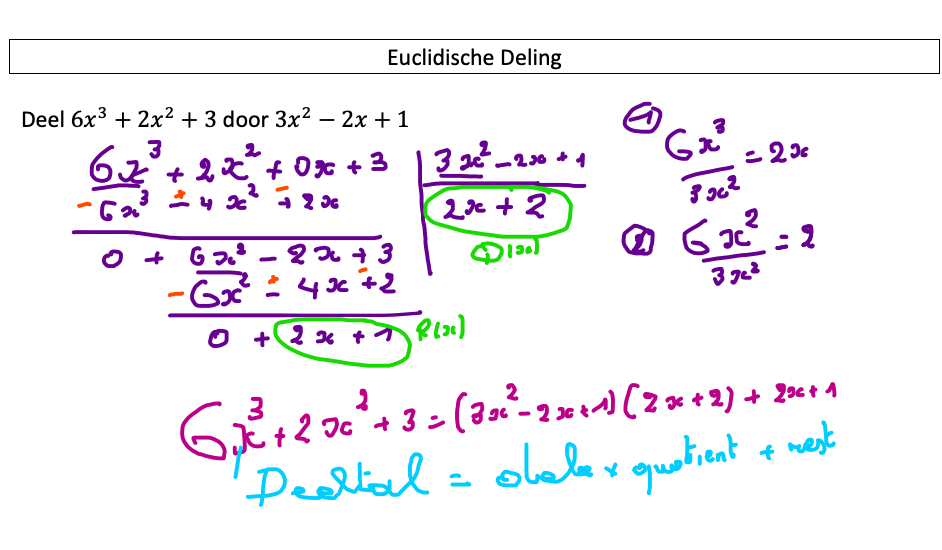 Euclidische Deling
Deel 6x³ + 2x² + 3 door 3x² − 2x + 1
6x³ + 2x² + 0x + 3 | 3x² - 2x + 1
- 6x³ ∓ 4x² + 2x | 2x + 2
0 + 6x² - 2x + 3 Q(x)
- 6x² ∓ 4x + 2
0 + 2x + 1 R(x)
① 6x³/3x² = 2x
② 6x²/3x² = 2
6x³ + 2x² + 3 = (3x² - 2x + 1)(2x + 2) + 2x + 1
Deeltal = deler × quotient + rest